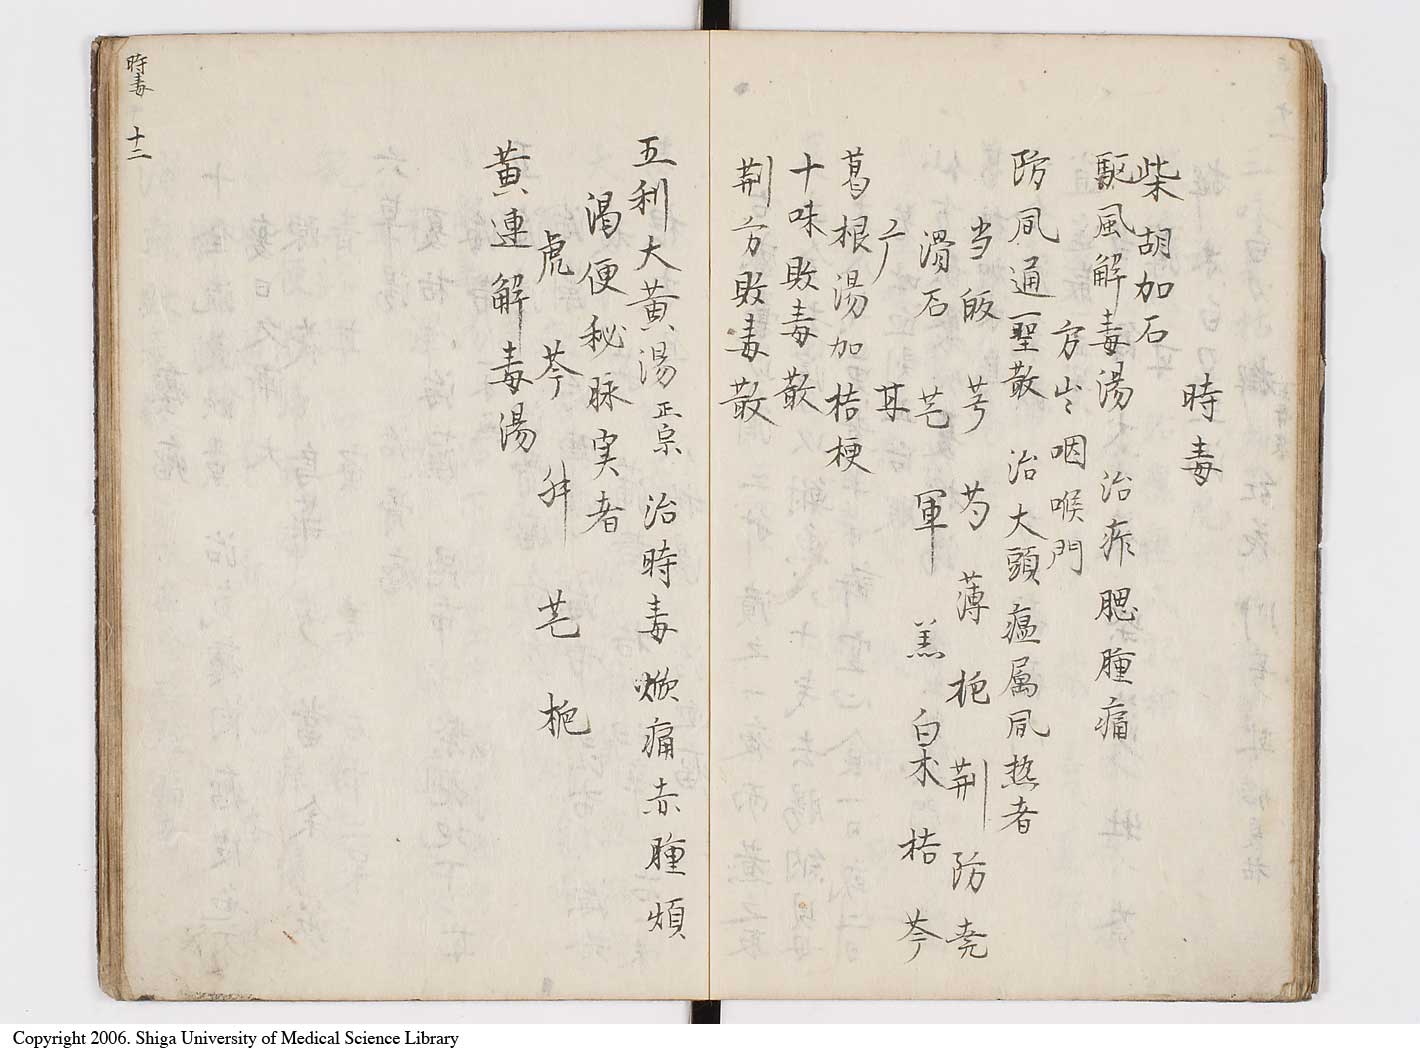 時毒
柴胡加石
駈風解毒湯 治痄腮腫痛
方出咽喉門
防風通聖散 治大頭瘟属風熱者
当 皈 芎 芍 薄 枙 荆 防 堯
滑石 芒 軍 羔 白朮 桔 芩
广 耳
葛根湯加桔梗
十味敗毒散
荆方敗毒散
五利大黄湯 正宗 治時毒焮痛赤腫煩
渇便秘脉実者
虎 芩 舛 芒 枙
黄連解毒湯
時毒 十二
Copyright 2006. Shiga University of Medical Science Library